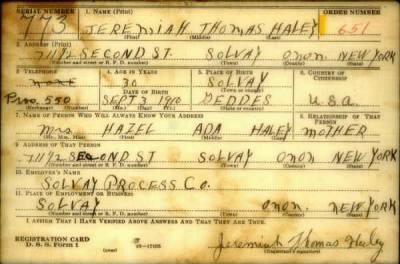 SERIAL NUMBER 1. NAME (Print) ORDER NUMBER
773 JEREMIAH THOMAS HALEY 651
(First) (Middle) (Last)
2. ADDRESS (Print)
711½ SECOND ST. SOLVAY ONON. NEW YORK
(Number and street or R. F. D. number) (Town) (County) (State)
3. TELEPHONE 4. AGE IN YEARS 5. PLACE OF BIRTH 6. COUNTRY OF CITIZENSHIP
none 30 SOLVAY
DATE OF BIRTH (Town or county)
550 SEPT 7 1910 GEDDES U.S.A.
(Exchange) (Number) (Mo.) (Day) (Yr.) (State or country)
7. NAME OF PERSON WHO WILL ALWAYS KNOW YOUR ADDRESS 8. RELATIONSHIP OF THAT PERSON
Mrs. HAZEL ADA HALEY MOTHER
(Mr., Mrs., Miss) (First) (Middle) (Last)
9. ADDRESS OF THAT PERSON
711½ SECOND ST SOLVAY ONON NEW YORK
(Number and street or R. F. D. number) (Town) (County) (State)
10. EMPLOYER'S NAME
SOLVAY PROCESS Co.
11. PLACE OF EMPLOYMENT OR BUSINESS
SOLVAY ONON. NEW YORK
(Number and street or R. F. D. number) (Town) (County) (State)
I AFFIRM THAT I HAVE VERIFIED ABOVE ANSWERS AND THAT THEY ARE TRUE.
REGISTRATION CARD
D. S. S. Form 1 Jeremiah Thomas Haley